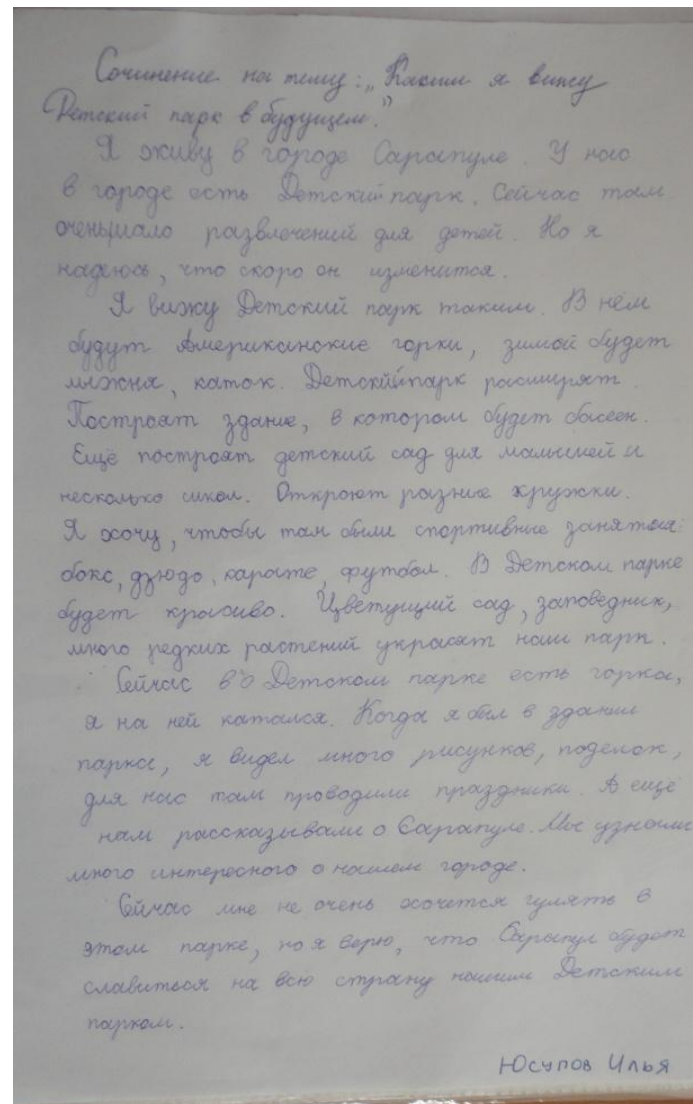 Сочинение на тему: „Каким я вижу
Детский парк в будущем."
Я живу в городе Сарапуле. У нас
в городе есть Детский парк. Сейчас там
очень мало развлечений для детей. Но я
надеюсь, что скоро он изменится.
Я вижу Детский парк таким. В нём
будут Американские горки, зимой будет
лыжня, каток. Детский парк расширят.
Построят здание, в котором будет басеен.
Ещё построят детский сад для малышей и
несколько школ. Откроют разные кружки.
Я хочу, чтобы там были спортивные занятия:
бокс, дзюдо, карате, футбол. В Детском парке
будет красиво. Цветущий сад, заповедник,
много редких растений украсят наш парк.
Сейчас в Детском парке есть горка,
я на ней катался. Когда я был в здании
парка, я видел много рисунков, поделок,
для нас там проводили праздники. А ещё
нам рассказывали о Сарапуле. Мы узнали
много интересного о нашем городе.
Сейчас мне не очень хочется гулять в
этом парке, но я верю, что Сарапул будет
славиться на всю страну нашим Детским
парком.
Юсупов Илья